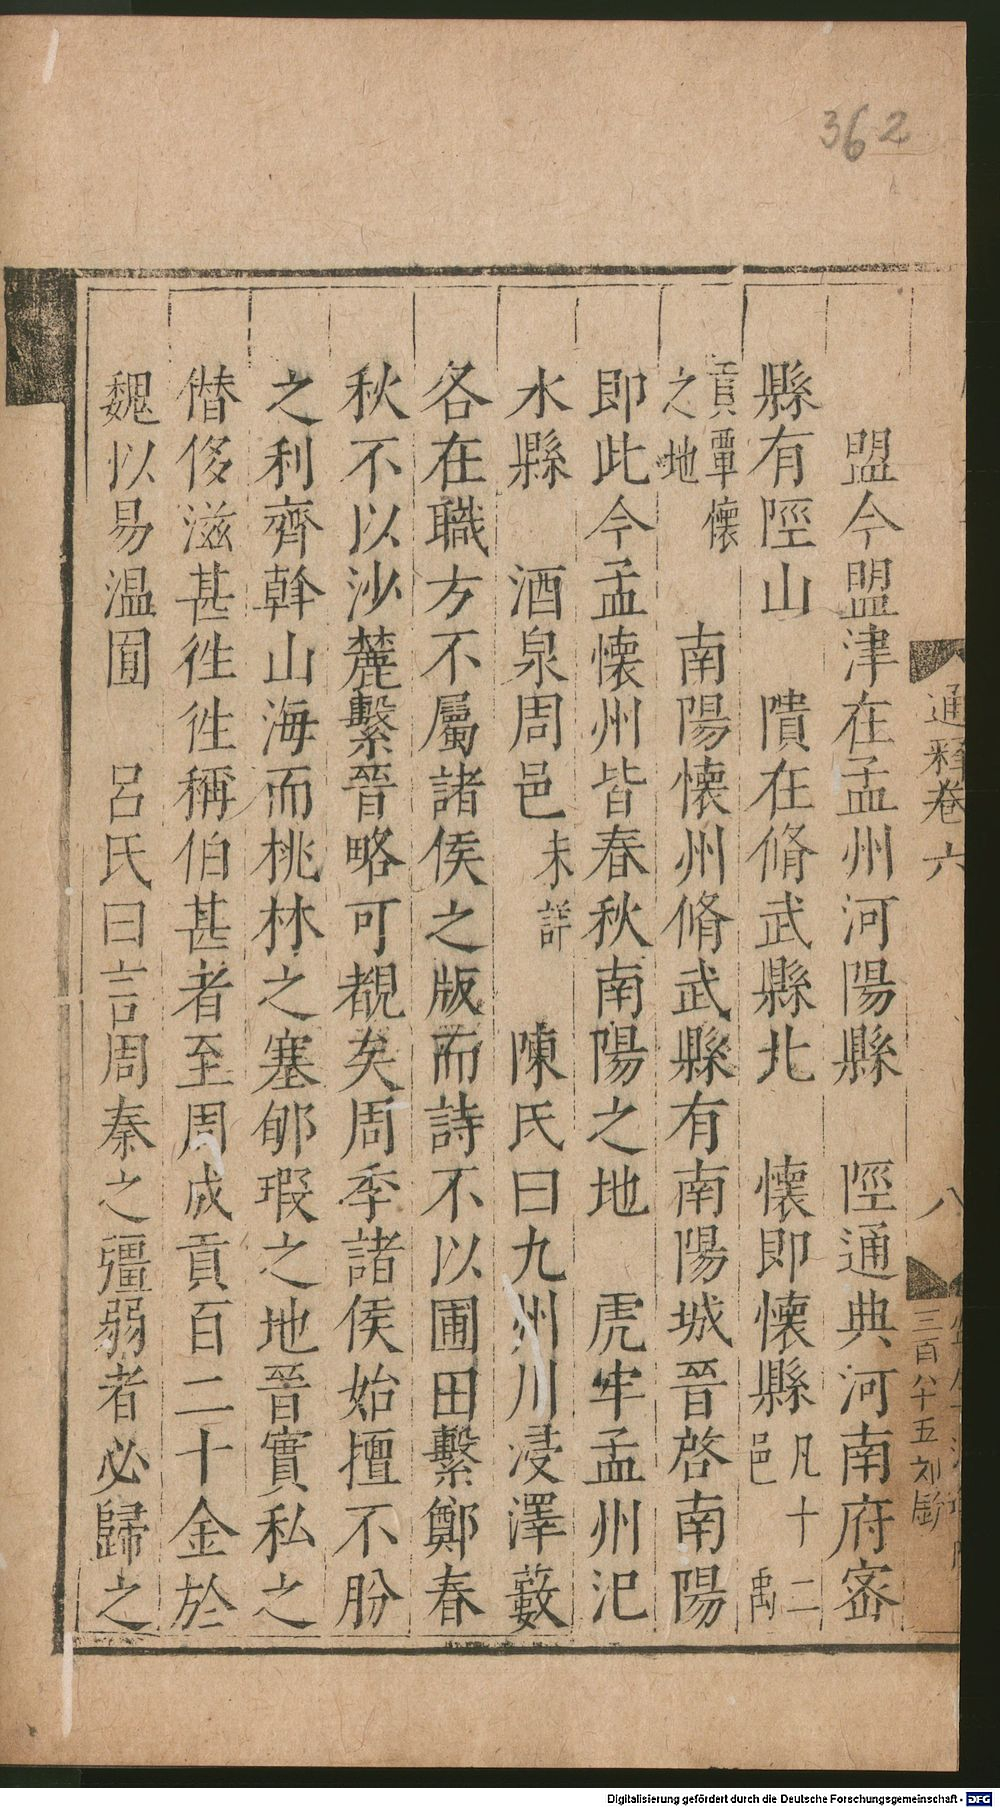 362
盟今盟津在孟州河陽縣　陘通典河南府宻
縣有陘山　隤在脩武縣北　懷即懷縣凡十二邑禹
貢覃懷之地　南陽懷州脩武縣有南陽城晉啓南陽
即此今孟懷州皆春秋南陽之地　虎牢孟州汜
水縣　酒泉周邑未詳　陳氏曰九州川浸澤藪
各在職方不屬諸侯之版而詩不以圃田繫鄭春
秋不以沙麓繫晉略可覩矣周季諸侯始擅不朌
之利齊斡山海而桃林之塞郇瑕之地晉實私之
僣侈滋甚徃徃稱伯甚者至周成貢百二十金於
魏以易温囿　呂氏曰言周秦之彊弱者必歸之
通釋卷六
八
三百八十五
Digitalisierung gefördert durch die Deutsche Forschungsgemeinschaft - DFG